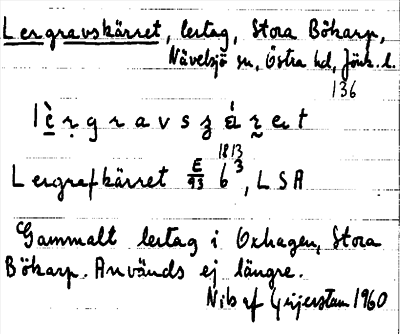 Lergravskärret, lertag, Stora Bökarp,
Nävelsjö sn, Östra hd, Jönk. l.
136
lè̱ṛgravsʒá̱ṛet
1813
Lergrafkärret E/93 6 3, LSA
Gammalt lertag i Oxhagen, Stora
Bökarp. Används ej längre.
Nils af Geijerstam 1960